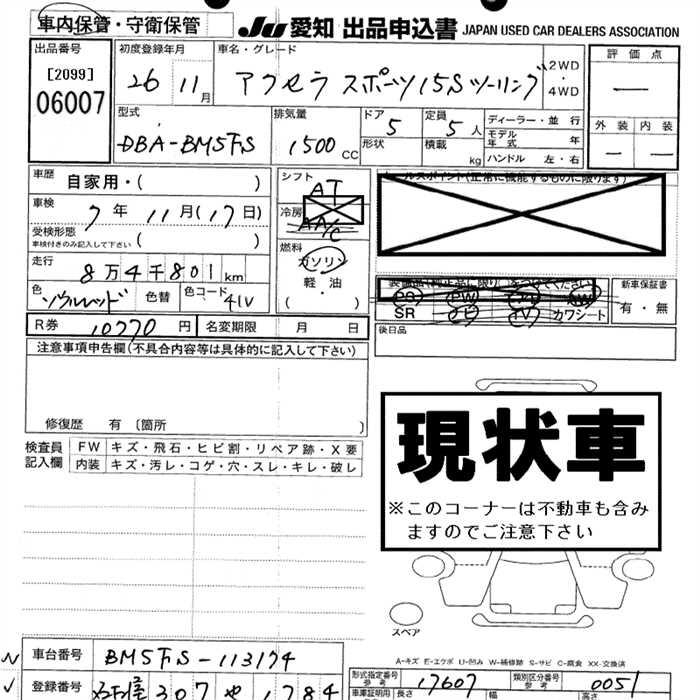 車内保管・守衛保管
JU 愛知 出品申込書 JAPAN USED CAR DEALERS ASSOCIATION
出品番号 初度登録年月 車名・グレード 評価点
[2099]
06007
26 11月 アクセラ スポーツ 15S ツーリング 2WD
・
4WD
型式 排気量 ドア 5 定員 5人 ディーラー・並行
外装 内装
DBA-BM5FS 1500 CC 形状 積載 kg
モデル年式 年
ハンドル 左・右
車歴 自家用・( )
シフト AT
セールスポイント(正常に機能するものに限ります)
車検 7年 11月(17日)
冷房 AAC A/C
受検形態
車検付きのみ記入して下さい ( )
燃料 ガソリン
軽油
( )
走行 8万4千801km
色 ソウルレッド 色替 色コード 41V
装備品(純正品に限り)をつけてください
PS PW AW
SR ナビ TV カワシート
新車保証書
有・無
R券 10770円 名変期限 月 日
後日品
注意事項申告欄(不具合内容等は具体的に記入して下さい)
修復歴 有 〔箇所 〕
検査員記入欄 FW キズ・飛石・ヒビ割・リペア跡・X要
内装 キズ・汚レ・コゲ・穴・スレ・キレ・破レ
現状車
※このコーナーは不動車も含み
ますのでご注意下さい
スペア
A-キズ E-エクボ U-凹み W-補修跡 S-サビ C-腐食 XX-交換済
車台番号 BM5FS-113174
登録番号 307 や 1784
形式指定番号
参考 17607 類別区分番号
参考 0051
車庫証明用 長さ 幅 高さ